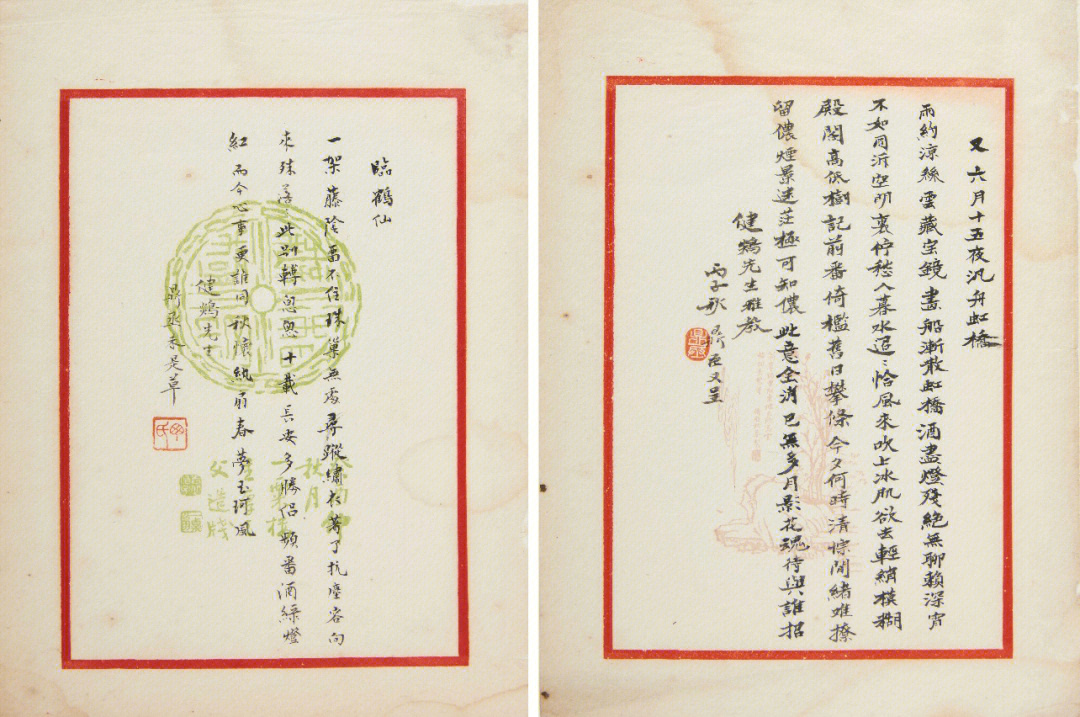 臨鶴仙
一架藤陰留不住珠巢無處尋蹤繡衣著了抗塵容向
來殊落〻此別轉怱怱十載長安多勝侶頻番酒綠燈
紅而今心事更誰同秋懷紈扇春夢玉珂風
健鵁先生
鼎丞未是草
秋月
父造牋
又 六月十五夜汎舟虹橋
雨約涼絲雲藏宝鏡畫船漸散虹橋酒盡燈殘絕無聊賴深宵
不如同泝空明裏佇愁入暮水迢〻恰風來吹上冰肌欲去輕綃模糊
殿閣高低樹記前番倚檻舊日攀條今夕何時清悰閒緒难撩
留儂煙景迷茫極可知儂此意全消已無多月影花魂待與誰招
健鵁先生雅教
丙子秋 又呈